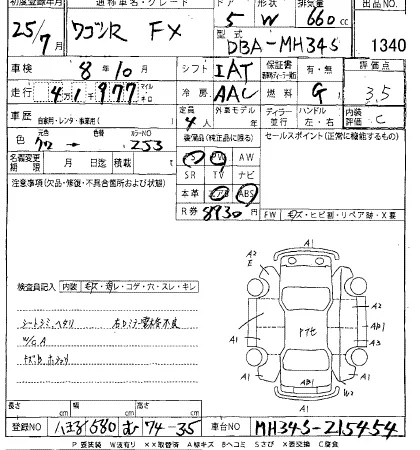 初度登録年月 通称車名・グレード ドア 形状 排気量 出品NO
25/7月 ワゴンR FX 5 W 660cc 1340
型式 DBA-MH34S
車検 8年10月 シフト IAT 保証書 有・無 評価点
走行 4万1千977 マイル キロ 冷房 AAC 燃料 G 3.5
車歴 自家用・レンタ・事業用 定員 4人 外車モデル ディーラー 並行 ハンドル 左・右 内装評価 C
色 元色 クロ → 色替 カラーNO Z53 後備品(純正品に限る) セールスポイント(正常に機能するもの)
名義変更期限 月 日迄 積載 t PS PW AW
注意事項(欠品・修復・不具合箇所および状態) SR TV ナビ
本革 エアB ABS
R券 8930円 FW キズ・ヒビ割・リペア跡・X要
A1
A2
E
検査員記入 内装 コゲ・穴・スレ・キレ
A1 A1 アイセ A2
AB1
A3
シートシミ、ヘタリ 右Dミラー
A1 A1
AB1 W2
A1
長さ cm 幅 cm 高さ cm
登録NO 八王子580 む 74-35 車台NO MH34S-215454
P要塗装 W波有り XX取替済 A線キズ Bヘコミ Sさび X要交換 C腐食